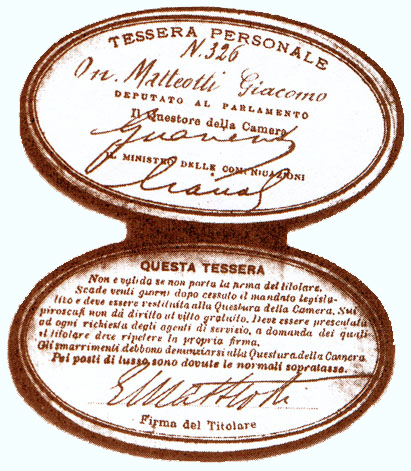 TESSERA PERSONALE
N. 326
On. Matteotti Giacomo
DEPUTATO AL PARLAMENTO
Il Questore della Camera
IL MINISTRO DELLE COMUNICAZIONI
QUESTA TESSERA
Non è valida se non porta la firma del titolare.
Scade venti giorni dopo cessato il mandato legisla-
tito e deve essere restituita alla Questura della Camera. Sui
piroscafi non dà diritto al vitto gratuito. Deve essere presentata
ad ogni richiesta degli agenti di servizio, a domanda dei quali
il titolare deve ripetere la propria firma.
Gli smarrimenti debbono denunziarsi alla Questura della Camera.
Pei posti di lusso sono dovute le normali sopratasse.
Matteotti
Firma del Titolare